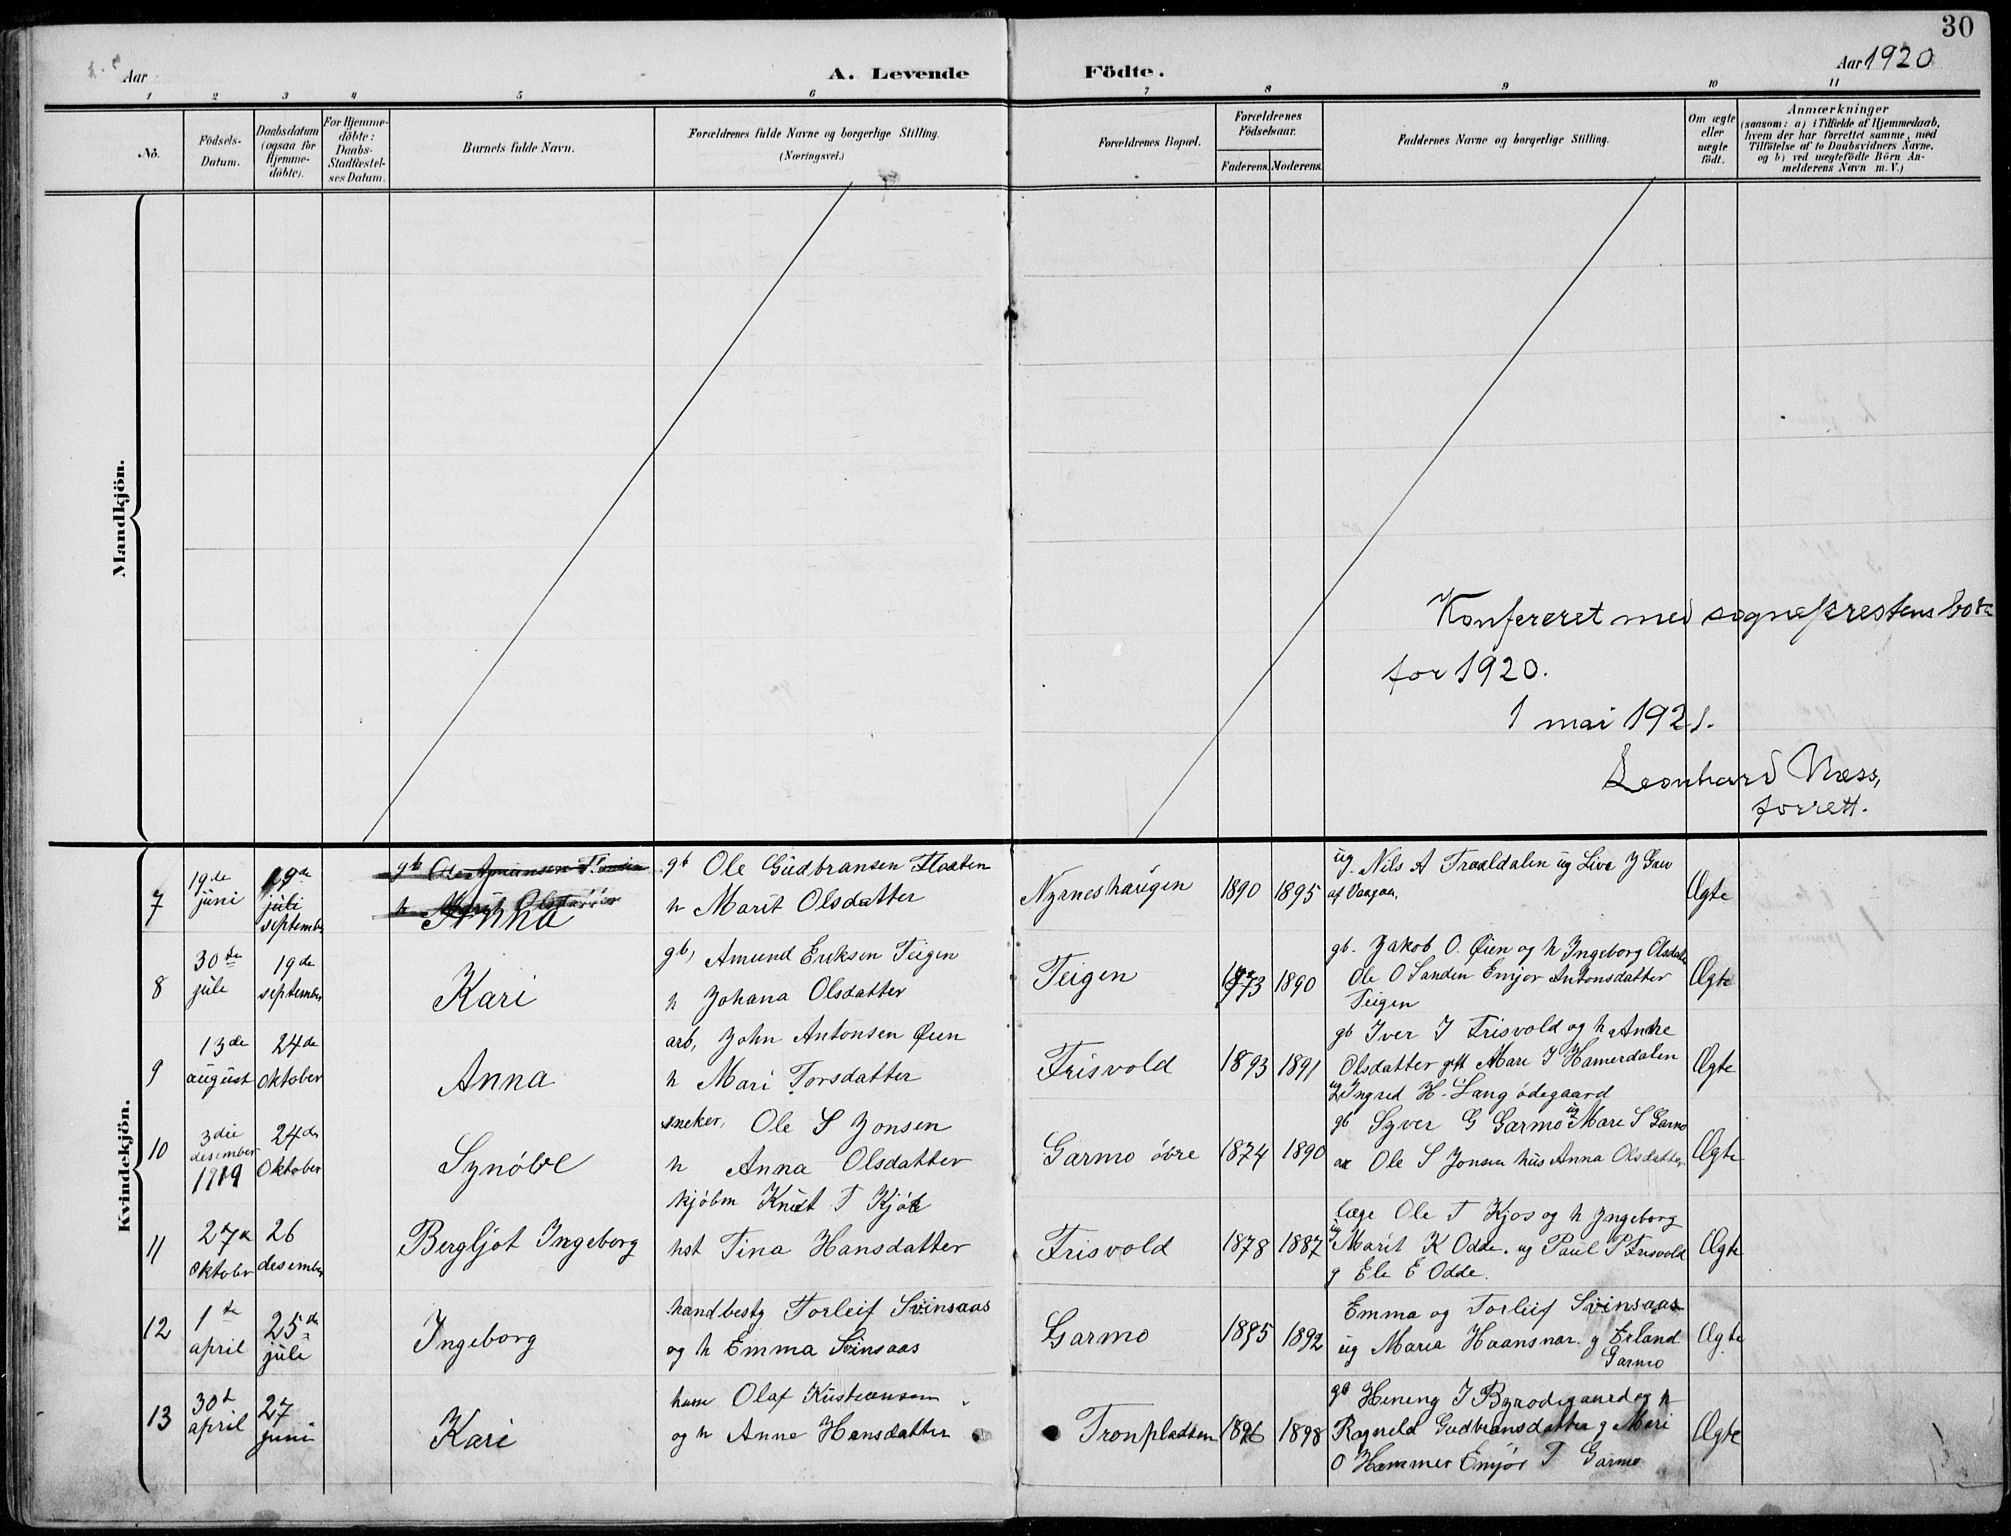 30
Aar
A. Levende
Födte.
Aar 1920
1 2 3 4 5 6 7 8 9 10 11
No.
Födsels-
Datum.
Daabsdatum
(ogsaa for
Hjemme-
döbte).
For Hjemme-
döbte:
Daabs-
Stadfæstel-
ses Datum.
Barnets fulde Navn.
Forældrenes fulde Navne og borgerlige Stilling.
(Næringsvei.)
Forældrenes Bopæl.
Forældrenes
Födselsaar.
Faderens. Moderens.
Faddernes Navne og borgerlige Stilling.
Om ægte
eller
uægte
födt.
Anmærkninger
(saasom: a) i Tilfælde af Hjemmedaab,
hvem der har forrettet samme, med
Tilföielse af to Daabsvidners Navne,
og b) ved uægtefödte Börn An-
melderens Navn m. V.)
Mandkjön.
Konfereret med sogneprestens
for 1920.
1 mai 1921.
Leonhard Næss,
forrett.
Kvindekjön.
7
19de
juni
19de
juli
september
Anna
gb Ole Gudbransen Flaaten
h Marit Olsdatter
Nyrneshaugen
1890
1895
ug. Nils A Traaldalen ug Liva J
af Vaagaa.
Ægte
8
30te
jule
19de
september
Kari
gb, Amund Eriksen Teigen
h Johana Olsdatter
Teigen
1873
1890
gb. Jakob O. Øien og h Ingeborg Olsdatter
Ole O Sanden Emjor Antonsdatter
Teigen
Ægte
9
13de
august
24de
oktober
Anna
arb, John Antonsen Øien
h Mari Torsdatter
Frisvold
1893
1891
gb Iver J Frisvold og h Andre
Olsdatter gtt Mari J Hamerdalen
ug Ingred H. Langødegaard
Ægte
10
3die
desember
1919
24de
Oktober
Synøve
sneker, Ole S Jonsen
h Anna Olsdatter
Garmo övre
1874
1890
gb Syver G Garmo ug Mari S Garmo
Ole S Jonsen hus Anna Olsdatter
Ægte
11
27de
Oktober
26
desember
Bergljot Ingeborg
kjøbm Knut T Kjøk
hst Tina Hansdatter
Frisvold
1878
1887
læge Ole T Kjos og h Ingeborg
ug Marit K Odde. ug Paul P Frisvold
g Ele E Odde.
Ægte
12
1te
april
25de
jule
Ingeborg
handbesty Torleif Svinsaas
og h Emma Svinsaas
Garmo
1895
1892
Emma og Torleif Svinsaas
ug Maria Haansnar. g Erland
Garmo
Ægte
13
30t
april
27
juni
Kari
Olaf Kristiansen
og h Anne Hansdatter
Tronpladsen
1896
1898
gb Hening J Bynødegaard og h
Ragneld Gudbransdatter g Mari
O Hammer Emjør T Garmo
Ægte